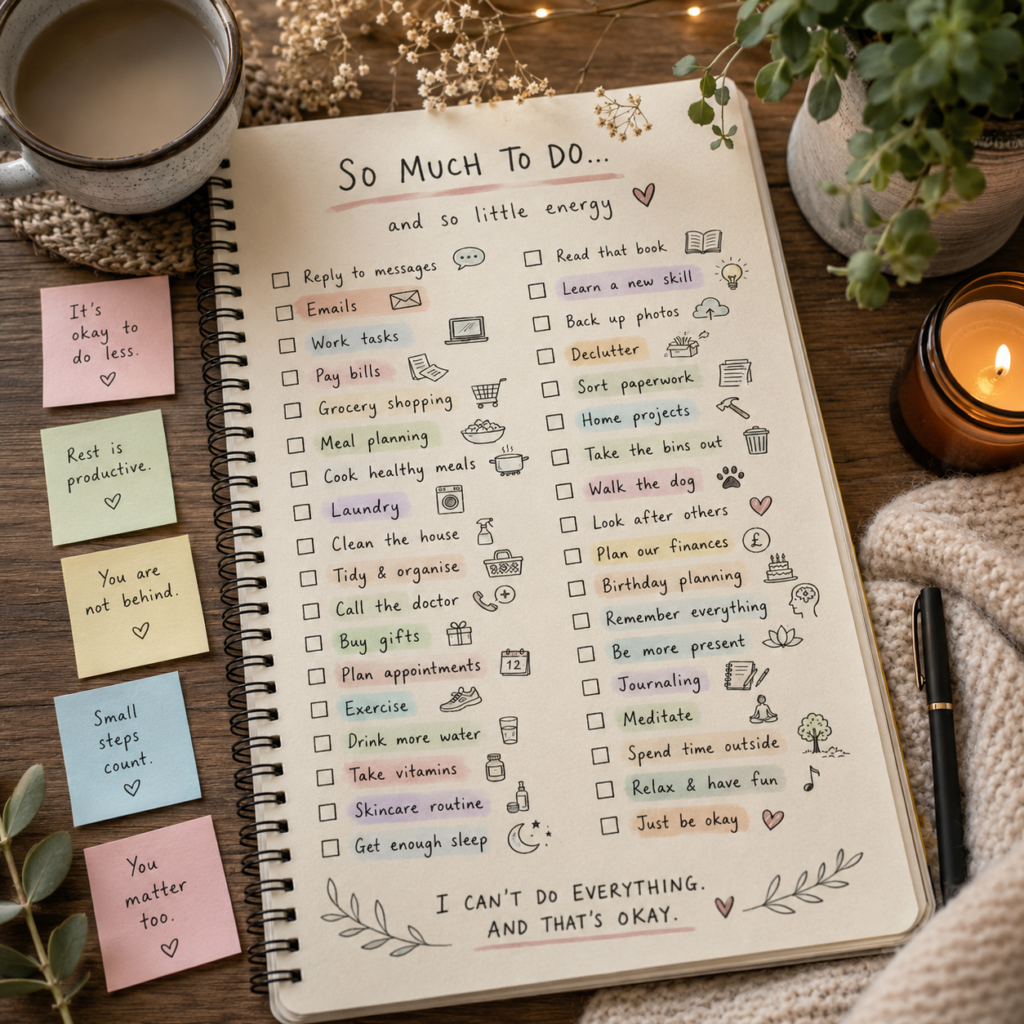 SO MUCH TO DO...
and so little energy
Reply to messages
Emails
Work tasks
Pay bills
Grocery shopping
Meal planning
Cook healthy meals
Laundry
Clean the house
Tidy & organise
Call the doctor
Buy gifts
Plan appointments
12
Exercise
Drink more water
Take vitamins
Skincare routine
Get enough sleep
Read that book
Learn a new skill
Back up photos
Declutter
Sort paperwork
Home projects
Take the bins out
Walk the dog
Look after others
Plan our finances
£
Birthday planning
Remember everything
Be more present
Journaling
Meditate
Spend time outside
Relax & have fun
Just be okay
I CAN'T DO EVERYTHING.
AND THAT'S OKAY.
It's
okay to
do less.
Rest is
productive.
You are
not behind.
Small
steps
count.
You
matter
too.